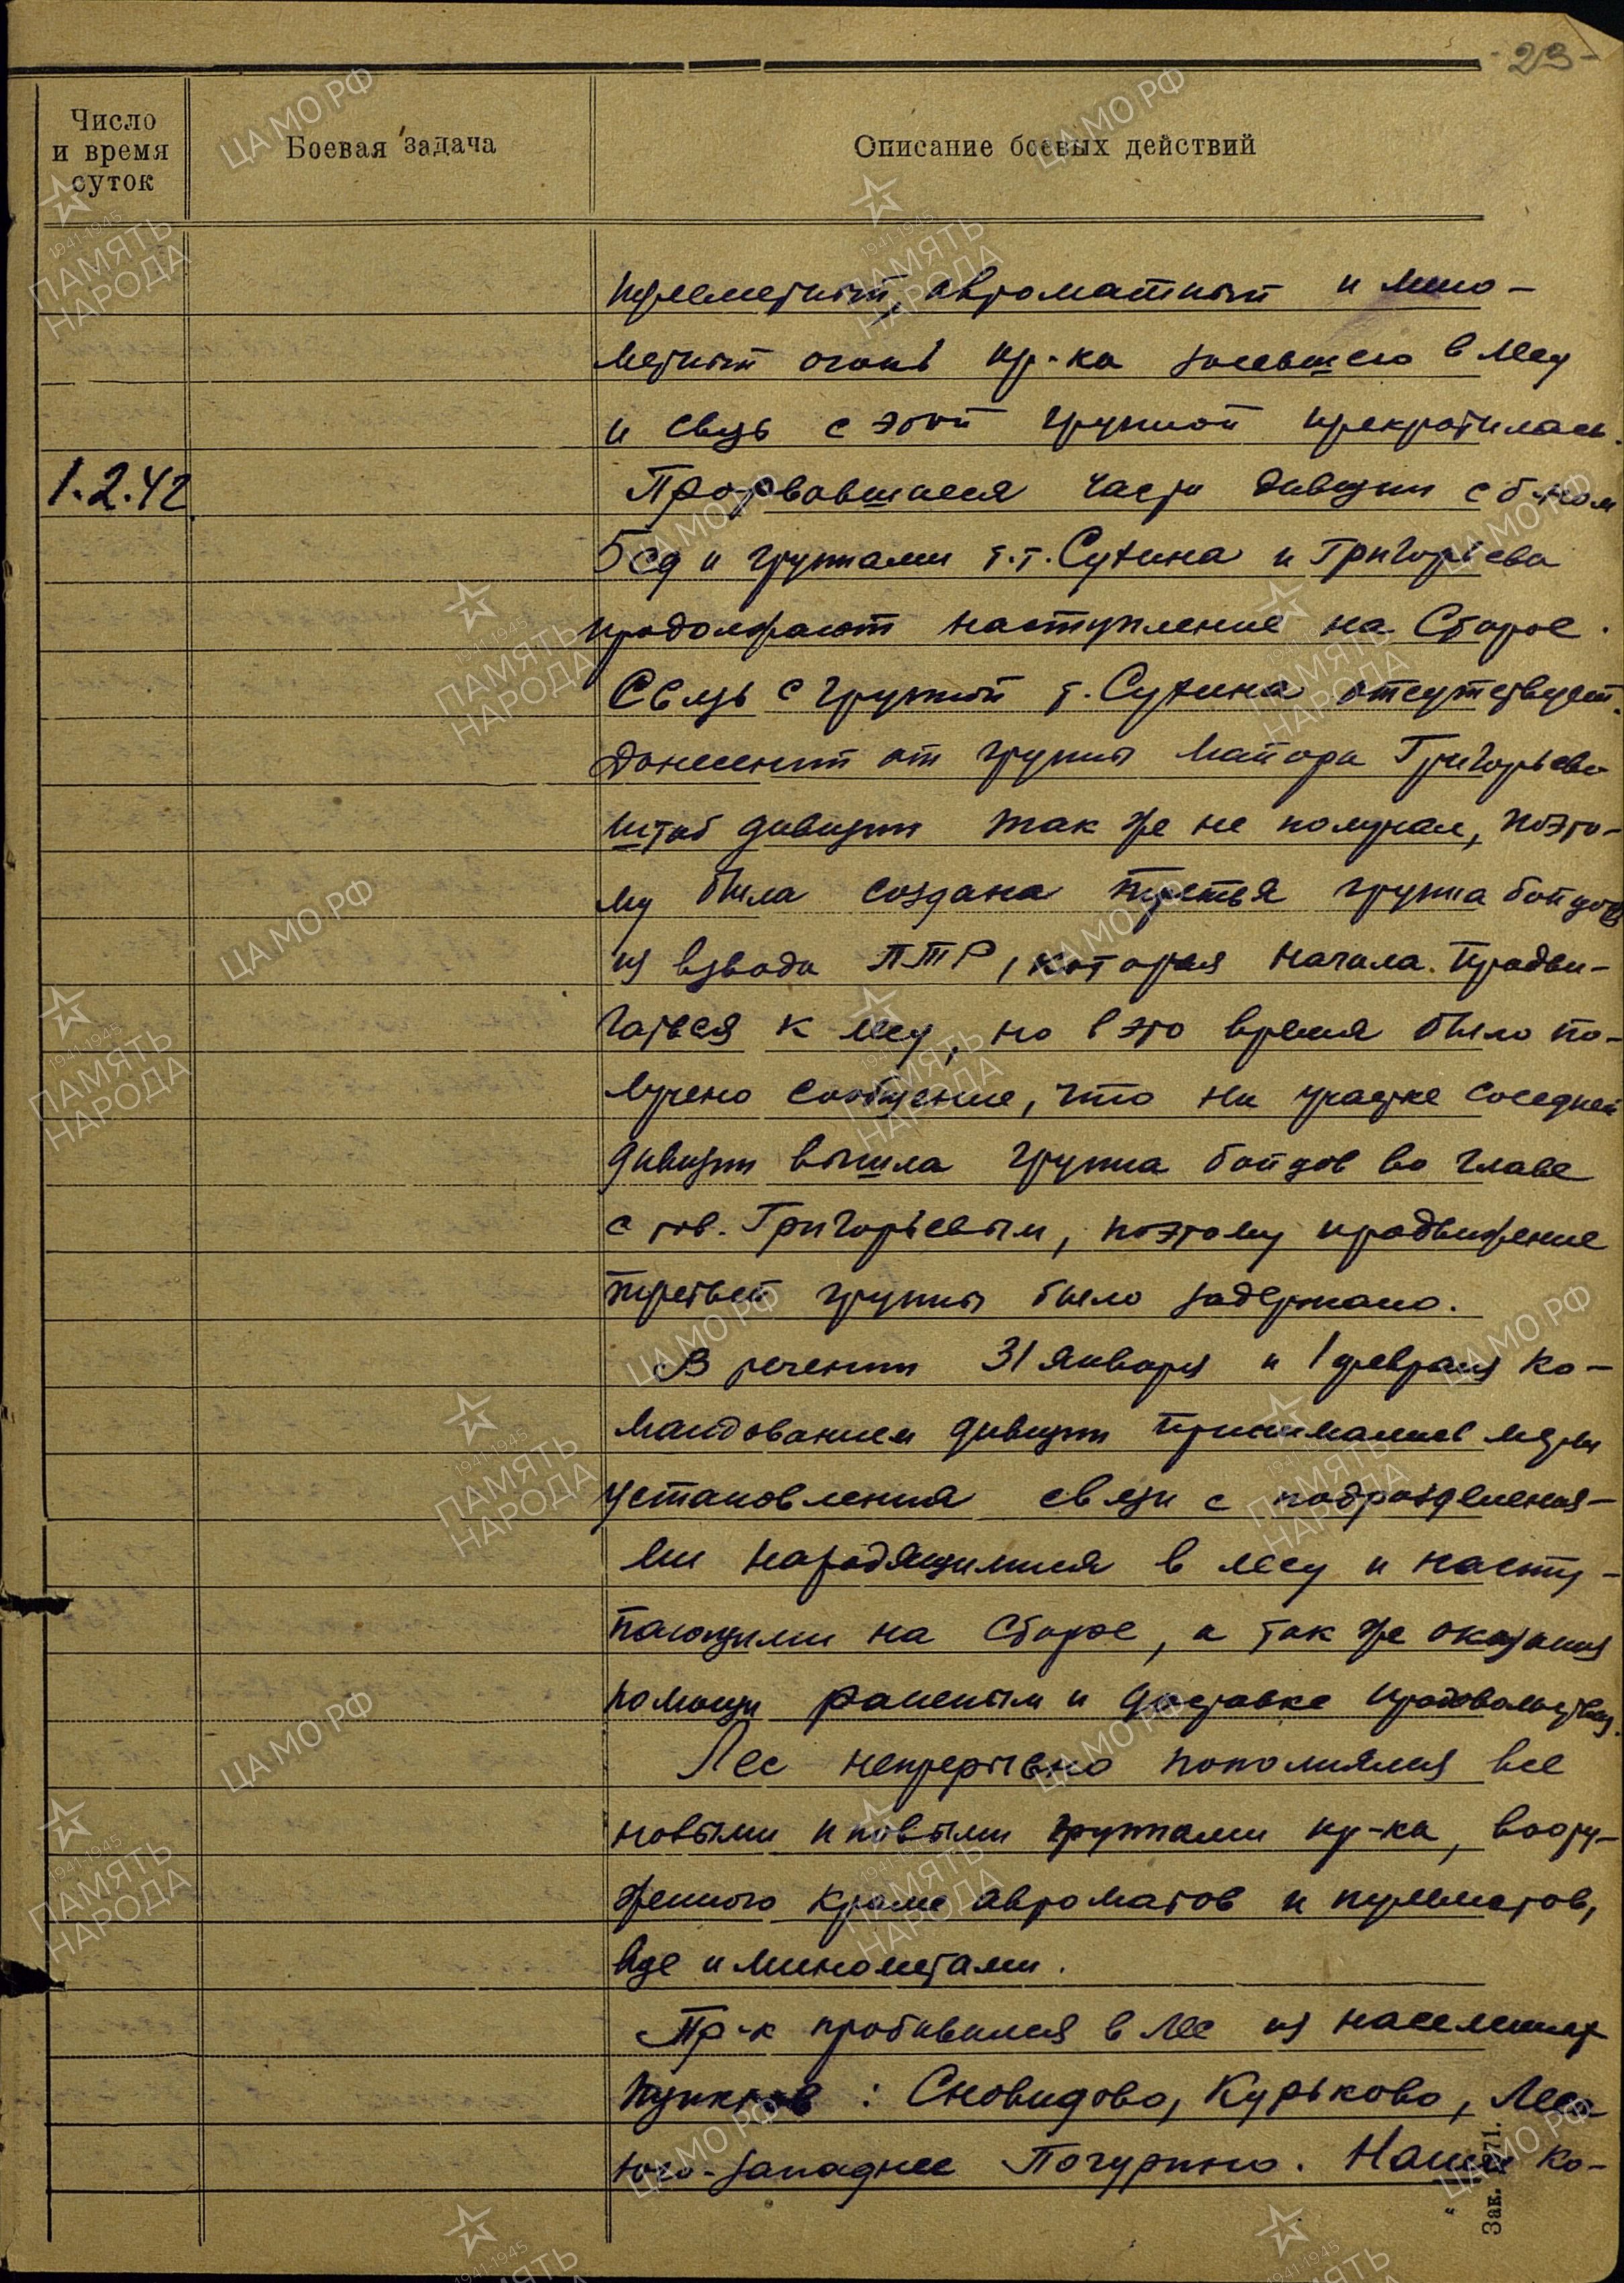 - 23 -
Число
и время
суток
Боевая задача
Описание боевых действий
пулеметный, автоматный и мино-
метный огонь пр-ка засевшего в лесу
и связь с этой группой прекратилась.
1.2.42
Прорвавшиеся части дивизии с б-ном
5 сд и группами т.т. Сутина и Григорьева
продолжают наступление на Старое.
Связь с группой т. Сутина отсутствует.
Донесений от группы майора Григорьева
штаб дивизии так же не получал, поэто-
му была создана третья группа бойцов
из взвода ПТР, которая начала продви-
гаться к лесу, но в это время было по-
лучено сообщение, что на участке соседней
дивизии вышла группа бойцов во главе
с тов. Григорьевым, поэтому продвижение
третьей группы было задержано.
В течении 31 января и 1 февраля ко-
мандованием дивизии принимались меры
установления связи с подразделения-
ми находящимися в лесу и насту-
пающими на Старое, а так же оказания
помощи раненым и доставке продовольствия.
Лес непрерывно пополнялся все
новыми и новыми группами пр-ка, воору-
женного кроме автоматов и пулеметов,
еще и минометами.
Пр-к пробивался в лес из населенных
пунктов: Сновидово, Курьково, Леса
юго-западнее Почурино. Наше ко-
Зак. 71.
ЦАМО РФ
1941-1945
ПАМЯТЬ
НАРОДА